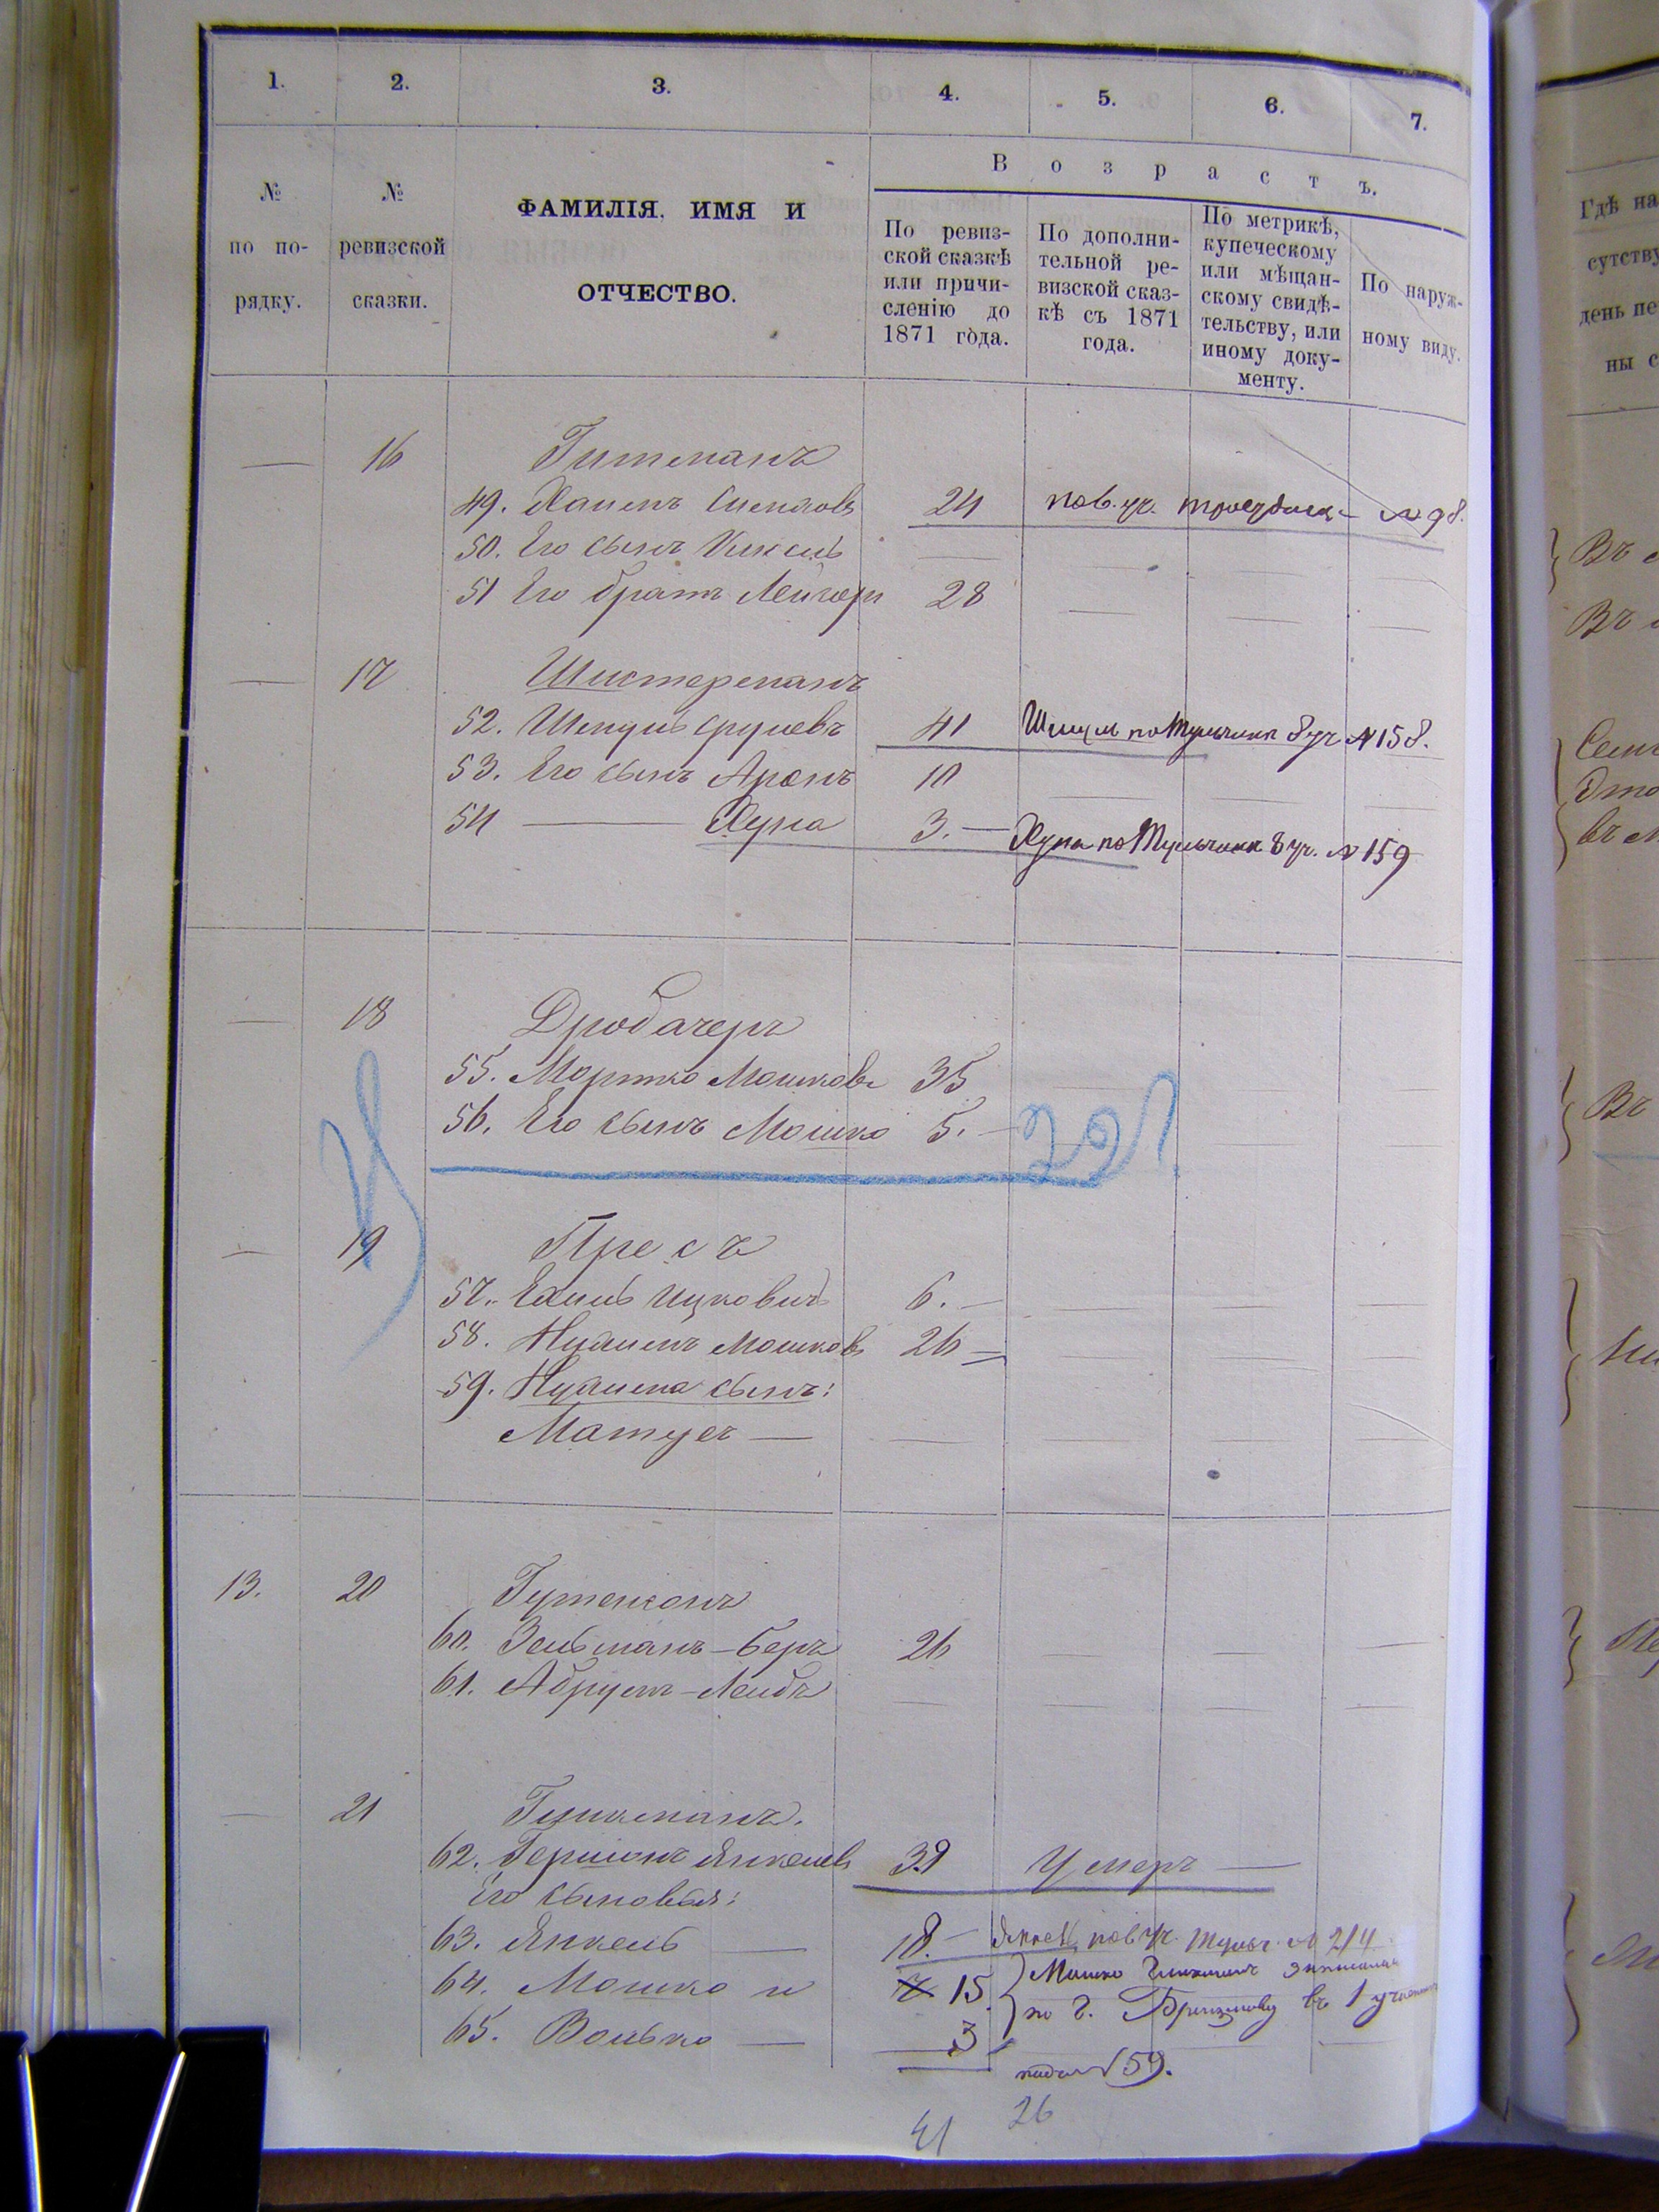 1. 2. 3. 4. 5. 6. 7.
В о з р а с т ъ.
№ по по- рядку.
№ ревизской сказки.
ФАМИЛІЯ, ИМЯ И
ОТЧЕСТВО.
По ревиз-
ской сказкѣ
или причи-
сленію до
1871 года.
По дополни-
тельной ре-
визской сказ-
кѣ съ 1871
года.
По метрикѣ,
купеческому
или мѣщан-
скому свидѣ-
тельству, или
иному доку-
менту.
По наруж-
ному виду.
— 16 Гительманъ
49. Хаимъ 24 пов. уч. № 98.
50. Его сынъ Кисель —
51 Его братъ Лейзеръ 28 — — —
— 17 Шистерманъ
52. Шмуль Сруневъ 41 Шмуль по Тульчина 8 уч № 158.
53. Его сынъ Аронъ 10 — — —
54 — Хуна 3. — Хуна по Тульчина 8 уч. № 159
— 18 Дробачеръ
55. Мортко Мошковъ 35
56. Его сынъ Мошко 5. — 291
— 19 Пресъ
57. Хаимъ Ицковичъ 6. — — — —
58. Нухимъ Мошковъ 26 — — — —
59. Нухима сынъ:
Матусъ — — — — —
13. 20 Гутенсонъ
60. Зельманъ-Беръ 26 — — —
61. Абрумъ-Лейбъ — — — —
— 21 Гликманъ.
62. Гершонъ Янкелевъ 39 Умеръ —
Его сыновья:
63. Янкель — 18. — Янкель пов уч. Тульч. № 214
64. Мошко и 15. Мошко Глikманъ записанъ
65. Волько — 3 по г. Брацлаву въ 1 участкѣ
подъ № 59.
41 26
Гдѣ на
сутству
день пе
ны с
Въ
Въ
Семе
Это
въ м
Въ